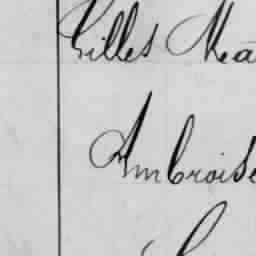 Gilles Mea
Ambroise